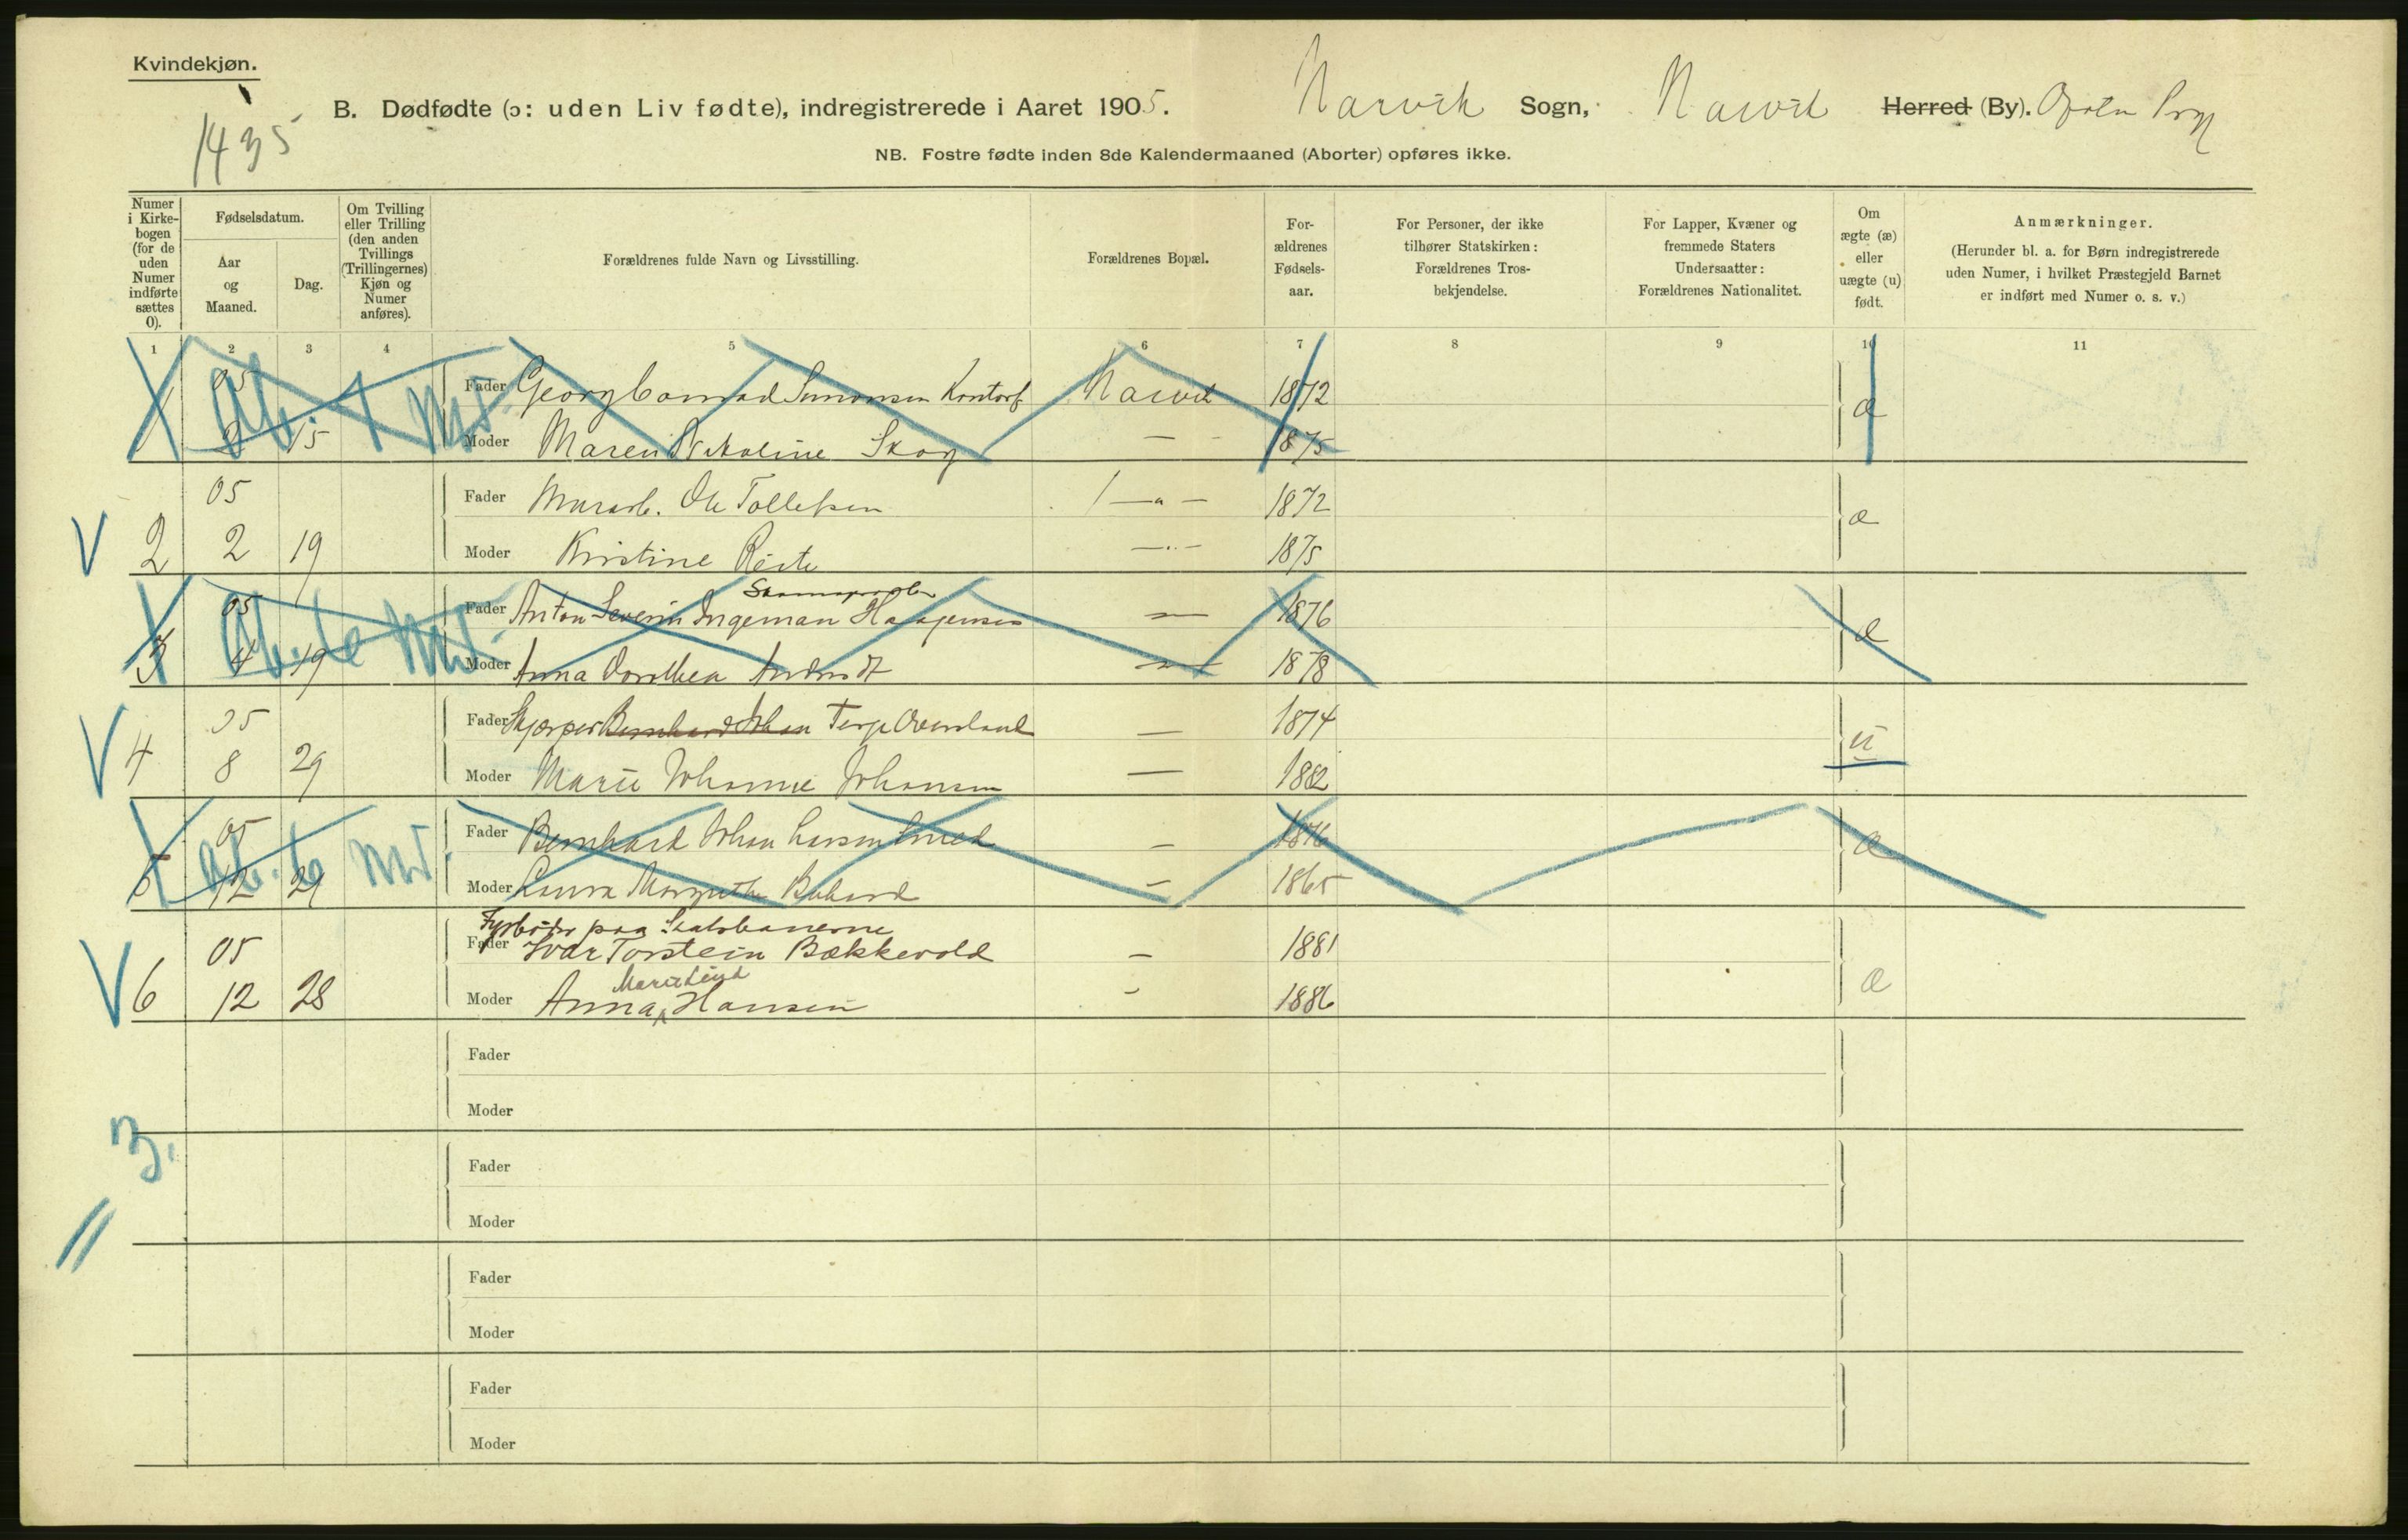 Kvindekjøn.
1435
B. Dødfødte (ɔ: uden Liv fødte), indregistrerede i Aaret 1905. Narvik Sogn, Narvik Herred (By). Ofoten
NB. Fostre fødte inden 8de Kalendermaaned (Aborter) opføres ikke.
Numer i Kirkebogen (for de uden Numer indførte sættes 0).
Fødselsdatum.
Aar og Maaned.
Dag.
Om Tvilling eller Trilling (den anden Tvillings (Trillingernes) Kjøn og Numer anføres).
Forældrenes fulde Navn og Livsstilling.
Forældrenes Bopæl.
Forældrenes Fødselsaar.
For Personer, der ikke tilhører Statskirken: Forældrenes Trosbekjendelse.
For Lapper, Kvæner og fremmede Staters Undersaatter: Forældrenes Nationalitet.
Om ægte (æ) eller uægte (u) født.
Anmærkninger.
(Herunder bl. a. for Børn indregistrerede uden Numer, i hvilket Præstegjeld Barnet er indført med Numer o. s. v.)
1 2 3 4 5 6 7 8 9 10 11
05 Fader Georg Conrad Simonsen Kontorb Narvik 1872 æ
1 15 Moder Maren Nikoline Skog — 1875
05 Fader Murarb. Ole Tollefsen — 1872 æ
V 2 2 19 Moder Kristine — 1875
05 Fader Anton Severin Ingeman — 1876 æ
3 4 19 Moder Anna Dorothea — 1878
05 Fader Bernhard Johan Terje Overland — 1874 u
V 4 8 29 Moder Marie Johanne Johansen — 1882
05 Fader Bernhard Johan Larsen Smed — 1876 æ
5 12 21 Moder Laura — 1865
Fyrbøder paa Statsbanerne
05 Fader Ivar Torstein Bækkevold — 1881 æ
V 6 12 28 Moder Anna Hansen - 1886
Fader
Moder
3.
Fader
Moder
Fader
Moder
Fader
Moder